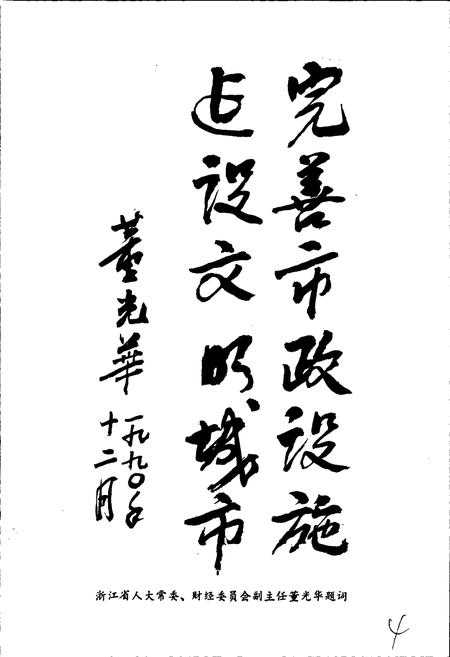 完善市政设施
建设文明城市
董光華
一九九〇年
十二月
浙江省人大常委、财经委员会副主任董光华题词
4